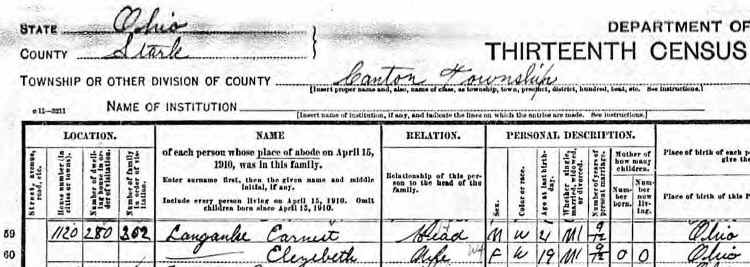 STATE Ohio
DEPARTMENT OF
COUNTY Stark
THIRTEENTH CENSUS
TOWNSHIP OR OTHER DIVISION OF COUNTY Canton Township
[Insert proper name and, also, name of class, as township, town, precinct, district, hundred, beat, etc. See instructions.]
NAME OF INSTITUTION
[Insert name of institution, if any, and indicate the lines on which the entries are made. See instructions.]
LOCATION.
Street, avenue, road, etc.
House number (in cities or towns).
Number of dwelling house in order of visitation.
Number of family in order of visitation.
NAME
of each person whose place of abode on April 15, 1910, was in this family.
Enter surname first, then the given name and middle initial, if any.
Include every person living on April 15, 1910. Omit children born since April 15, 1910.
RELATION.
Relationship of this person to the head of the family.
PERSONAL DESCRIPTION.
Sex.
Color or race.
Age at last birthday.
Whether single, married, widowed, or divorced.
Number of years of present marriage.
Mother of how many children.
Number born.
Number now living.
Place of birth of each p
give the
Place of birth of this P
59 1120 280 302 Langanke Earnest Head M W 21 M1 9/12 Ohio
60 Elizebeth Wife F W 19 M1 9/12 0 0 Ohio